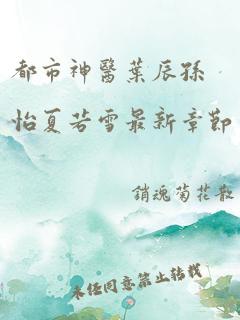 都市神醫葉辰孫
怡夏若雪最新章節
銷魂菊花散
未经同意禁止转载